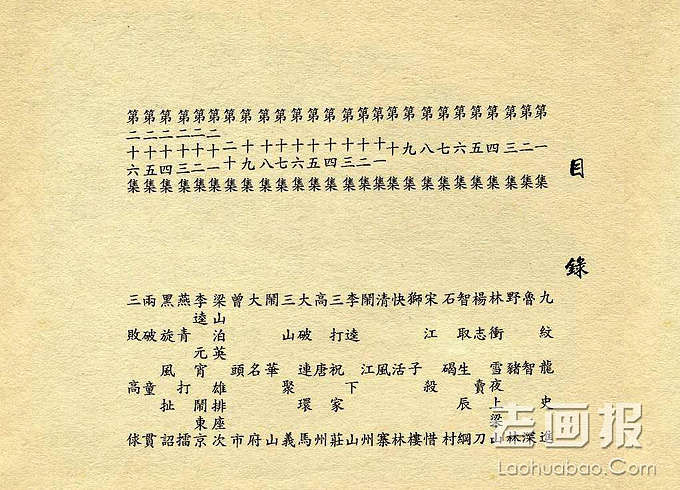 目錄
第一集 九紋龍史進
第二集 魯智深
第三集 野豬林
第四集 林衝雪夜上梁山
第五集 楊志賣刀
第六集 智取生辰綱
第七集 石碣村
第八集 宋江殺惜
第九集 獅子樓
第十集 快活林
第十一集 清風寨
第十二集 鬧江州
第十三集 李逵下山
第十四集 三打祝家莊
第十五集 高唐州
第十六集 大破連環馬
第十七集 三山聚義
第十八集 鬧華山
第十九集 大名府
第二十集 曾頭市
第二十一集 梁山泊英雄排座次
第二十二集 李逵元宵鬧東京
第二十三集 燕青打擂
第二十四集 黑旋風扯詔
第二十五集 兩破童貫
第二十六集 三敗高俅
老画报
Laohuabao.Com